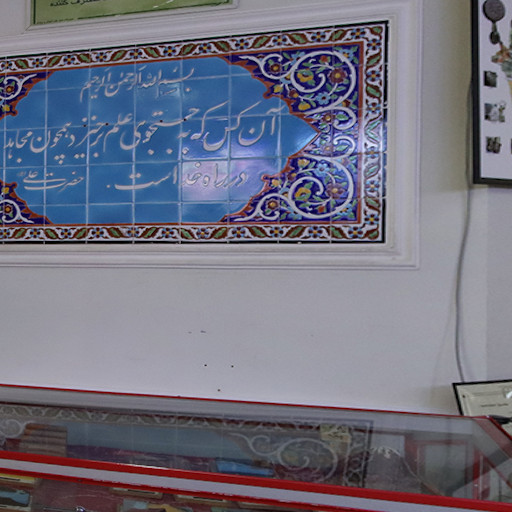 مصرف کننده
بسم الله الرحمن الرحیم
آن کس که به جستجوی علم برخیزد همچون مجاهد
در راه خدا است. حضرت علی